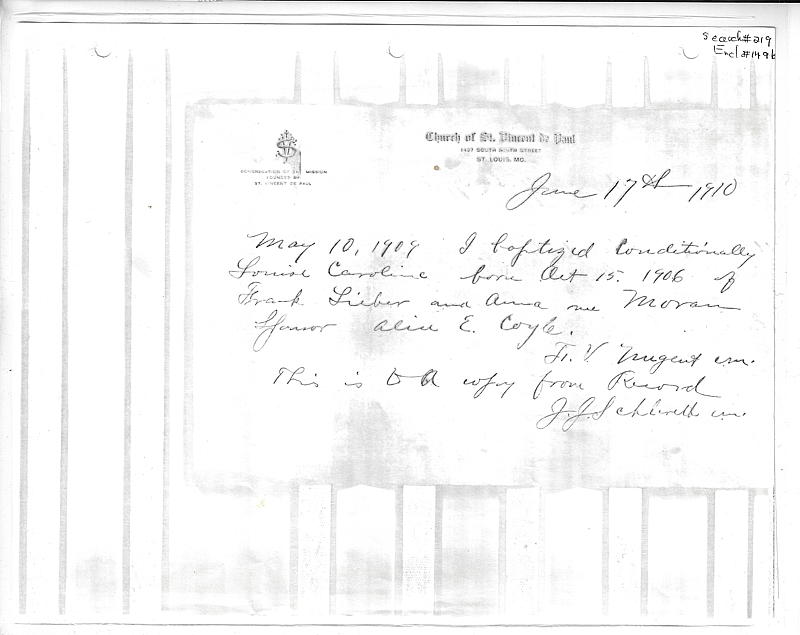 Search#219
Encl#1496
Church of St. Vincent de Paul
1427 SOUTH NINTH STREET
ST. LOUIS, MO.
CONGREGATION OF THE MISSION
FOUNDED BY
ST. VINCENT DE PAUL
June 17th 1910
May 10, 1909 I baptized Conditionally
Louise Caroline born Oct 15. 1906 of
Frank Lieber and Anna nee Moran
Sponsor Alice E. Coyle.
F. V. Nugent c.m.
This is a copy from Record
J. J. c.m.